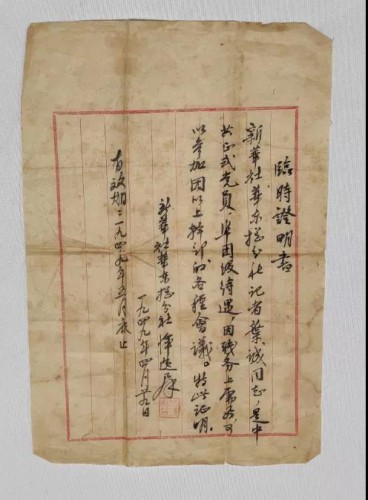 臨時證明書
新華社華东總分社記者葉诚同志，是中
共正式党员，享团级待遇，因職务上需要可
以参加团以上幹部的各種會議。特此证明。
新華社華东總分社
一九四九年四月廿五日
有效期：一九四九年五月底止